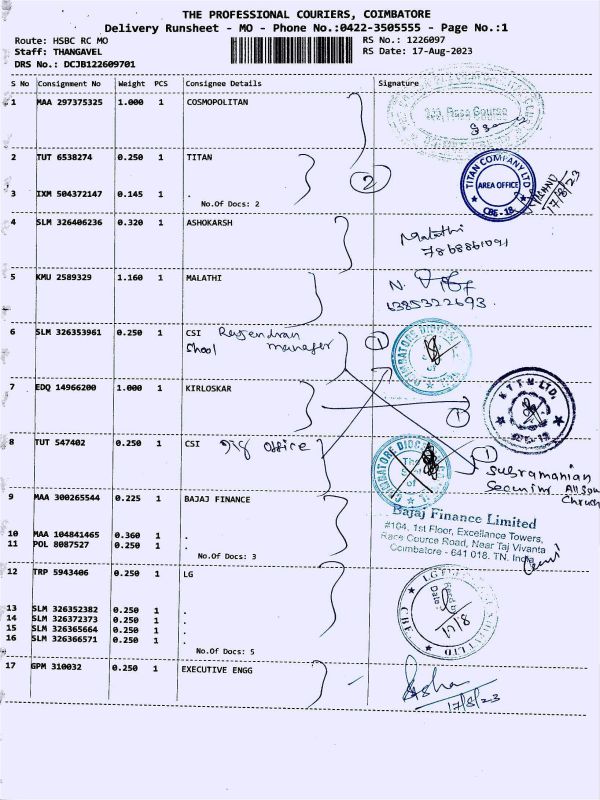 THE PROFESSIONAL COURIERS, COIMBATORE
Delivery Runsheet - MO - Phone No.:0422-3505555 - Page No.:1
Route: HSBC RC MO
RS No.: 1226097
Staff: THANGAVEL
RS Date: 17-Aug-2023
DRS No.: DCJB122609701
S No Consignment No Weight PCS Consignee Details Signature
1 MAA 297375325 1.000 1 COSMOPOLITAN
Race Course
2 TUT 6538274 0.250 1 TITAN
TITAN COMPANY LTD
AREA OFFICE
CBE-18
17/8/23
2
3 IXM 504372147 0.145 1 .
No.Of Docs: 2
4 SLM 326406236 0.320 1 ASHOKARSH
Malathi
5 KMU 2589329 1.160 1 MALATHI
N.
6385322693
6 SLM 326353961 0.250 1 CSI Rajendran
manager
1
7 EDQ 14966200 1.000 1 KIRLOSKAR
1
8 TUT 547402 0.250 1 CSI office
COIMBATORE DIOC
The
of
1
Subramanian
9 MAA 300265544 0.225 1 BAJAJ FINANCE
Bajaj Finance Limited
#104, 1st Floor, Excellance Towers,
Race Cource Road, Near Taj Vivanta
Coimbatore - 641 018. TN. India
10 MAA 104841465 0.360 1 .
11 POL 8087527 0.250 1 .
No.Of Docs: 3
12 TRP 5943406 0.250 1 LG
Date
17/8
CBE
13 SLM 326352382 0.250 1 .
14 SLM 326372373 0.250 1 .
15 SLM 326365664 0.250 1 .
16 SLM 326366571 0.250 1 .
No.Of Docs: 5
17 GPM 310032 0.250 1 EXECUTIVE ENGG
17/8/23